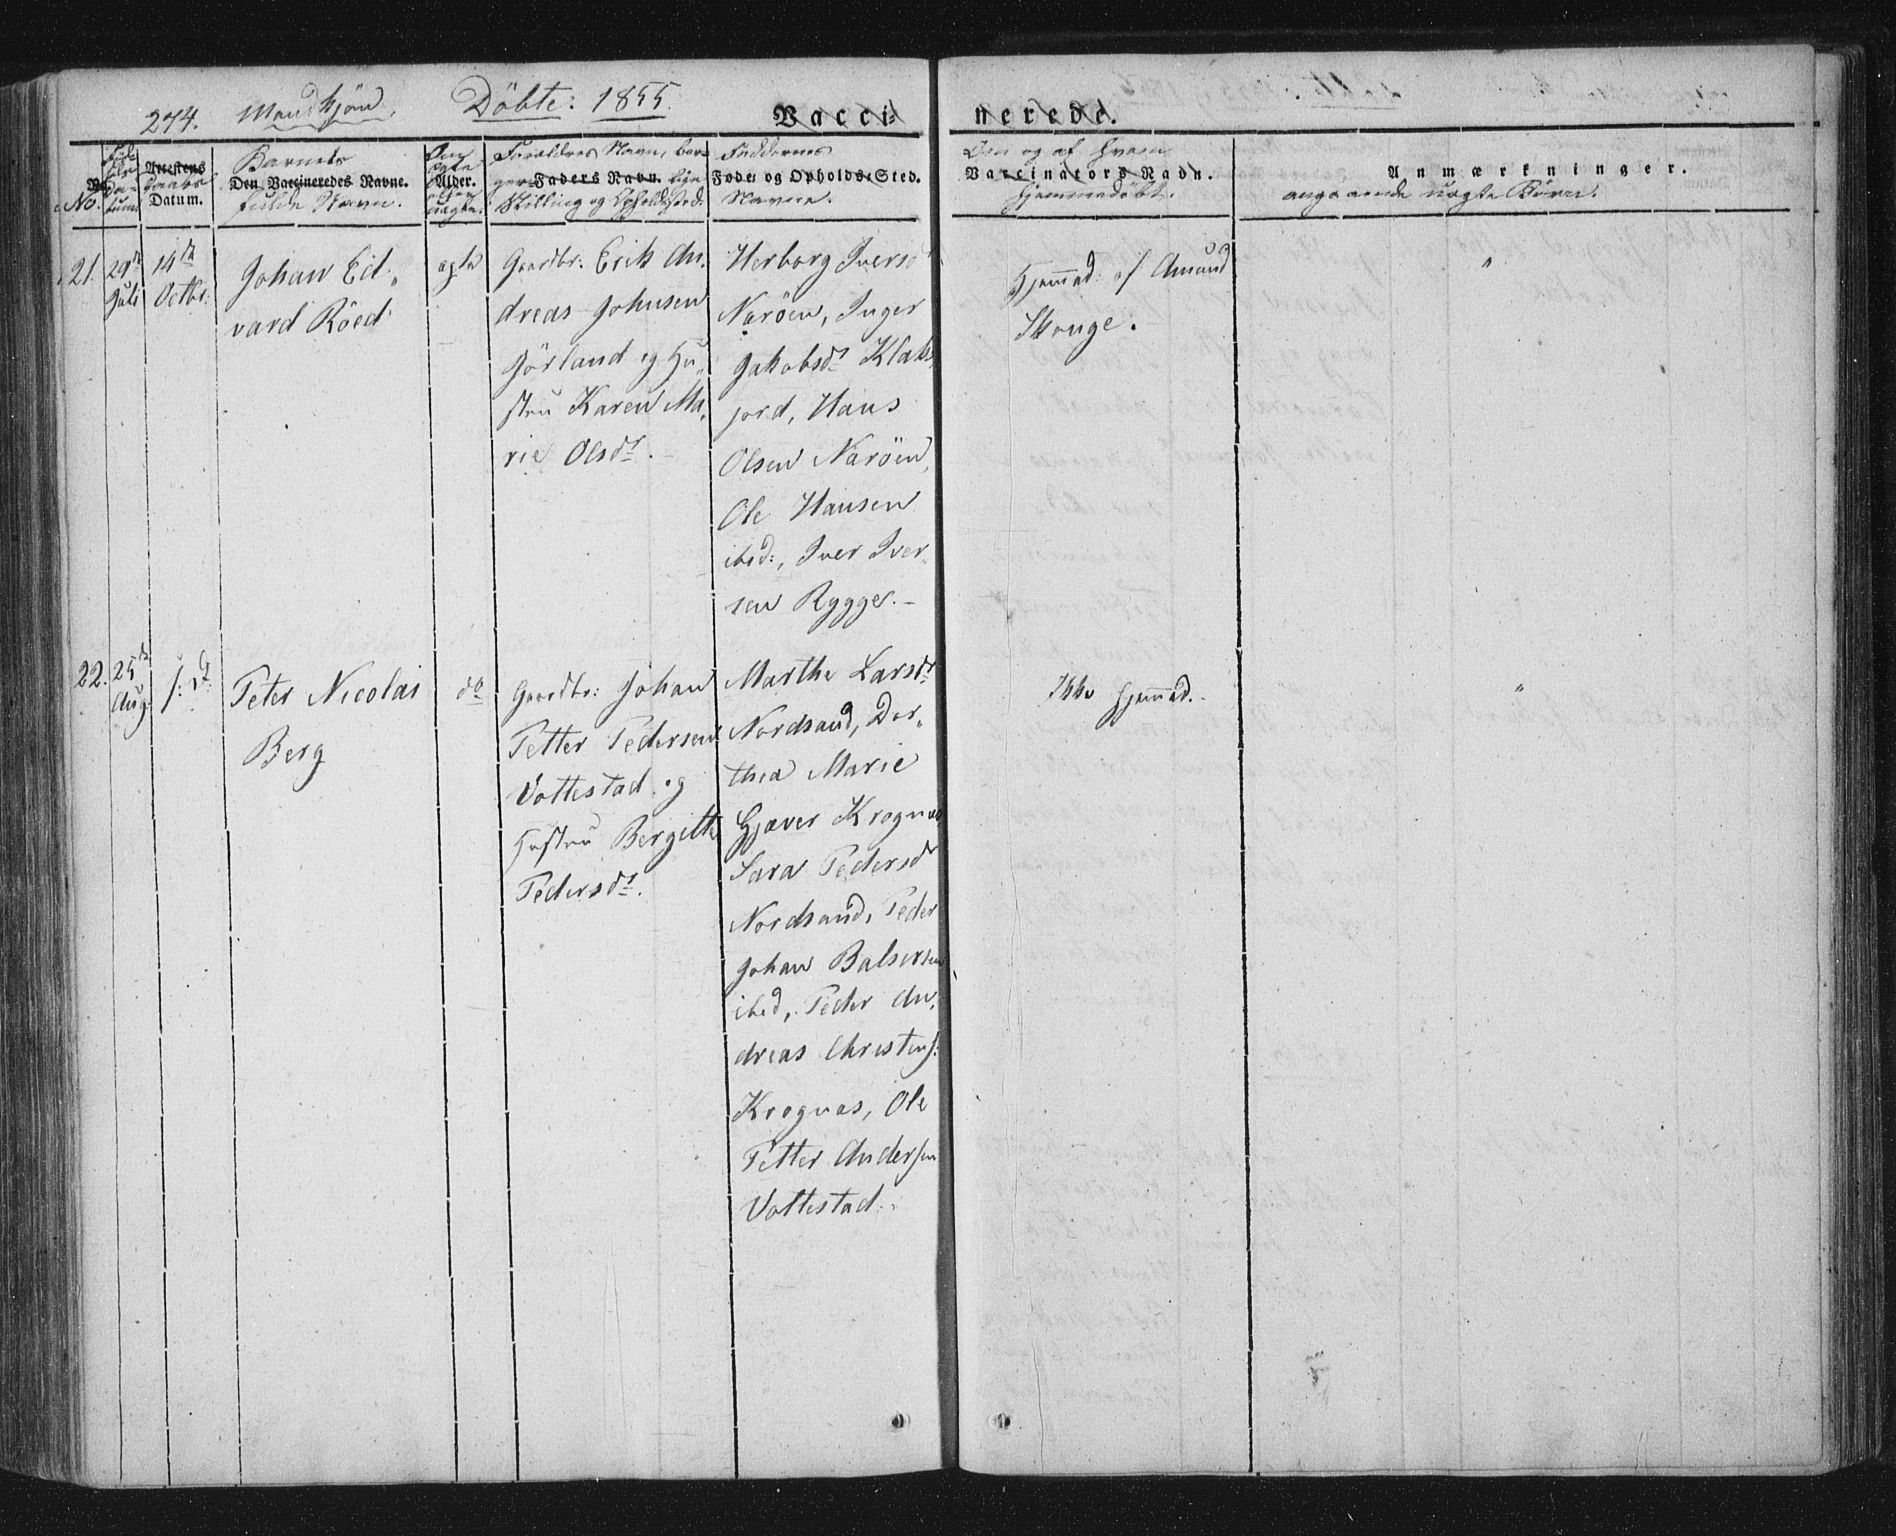 274. Mandkjön. Döbte: 1855.
Vacci-nerede.
No.
Attestens Datum.
Barnets fulde Navn.
Den Vaccineredes Navne.
Alder.
Om ægte eller uægte.
Forældres Navn, bor-
Faders Navn.
Stilling og Opholdssted.
Faddernes
Føde- og Opholds-Sted.
Navne.
Om og af hvem
Vaccinators Navn.
hjemmedöbt.
Anmærkninger.
angaaende uægte Börn.
21. 29de Juli
14de Octbr:
Johan Ed-
vard Röed
ægte
Gaardbr: Erik An-
dreas Johnsen
Jörland og Hu-
stru Karen Ma-
rie Olsdt. -
Herborg Iversdt
Naröen, Inger
Jakobsdt Klak-
jord, Hans
Olsen Naröen,
Ole Hansen
ibid:, Iver Iver-
sen Rygge. -
Hjemmed: af Amund
Skonge.
"
22. 25de Aug.
Peter Nicolai
Berg
do
Gaardbr: Johan
Petter Pedersen
Vottestad og
Hustru Bergitte
Pedersdt.
Marthe Larsdt
Nordsand, Dor-
thea Marie
Gjæver Krognæs
Sara Pedersdt
Nordsand, Peder
Johan Balsersen
ibid, Peder An-
dreas Christens:
Krognæs, Ole
Petter Andersen
Vottestad.
Ikke hjemmed.
"